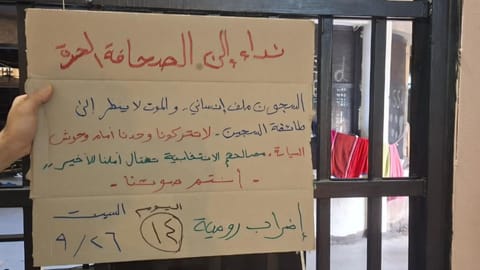 نداء إلى الصحافة الحرة
السجون ملف إنساني.. والموت لا ينظر إلى
طائفة السجين. لا تتركونا وحدنا أمام وحوش
السياسة. مصالحهم الانتخابية تغتال أملنا الأخير..
- أنتم صوتنا -
إضراب رومية ١٤ اليوم السبت
٩/٢٦